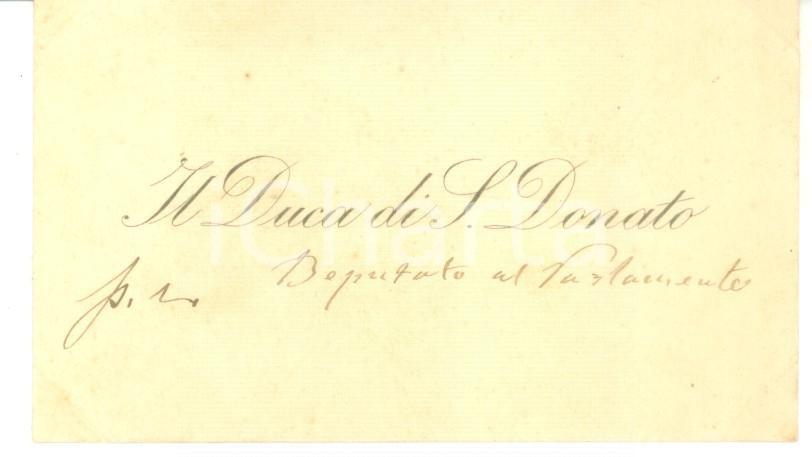 Il Duca di S. Donato
Deputato al Parlamento
p. r.
iCharta